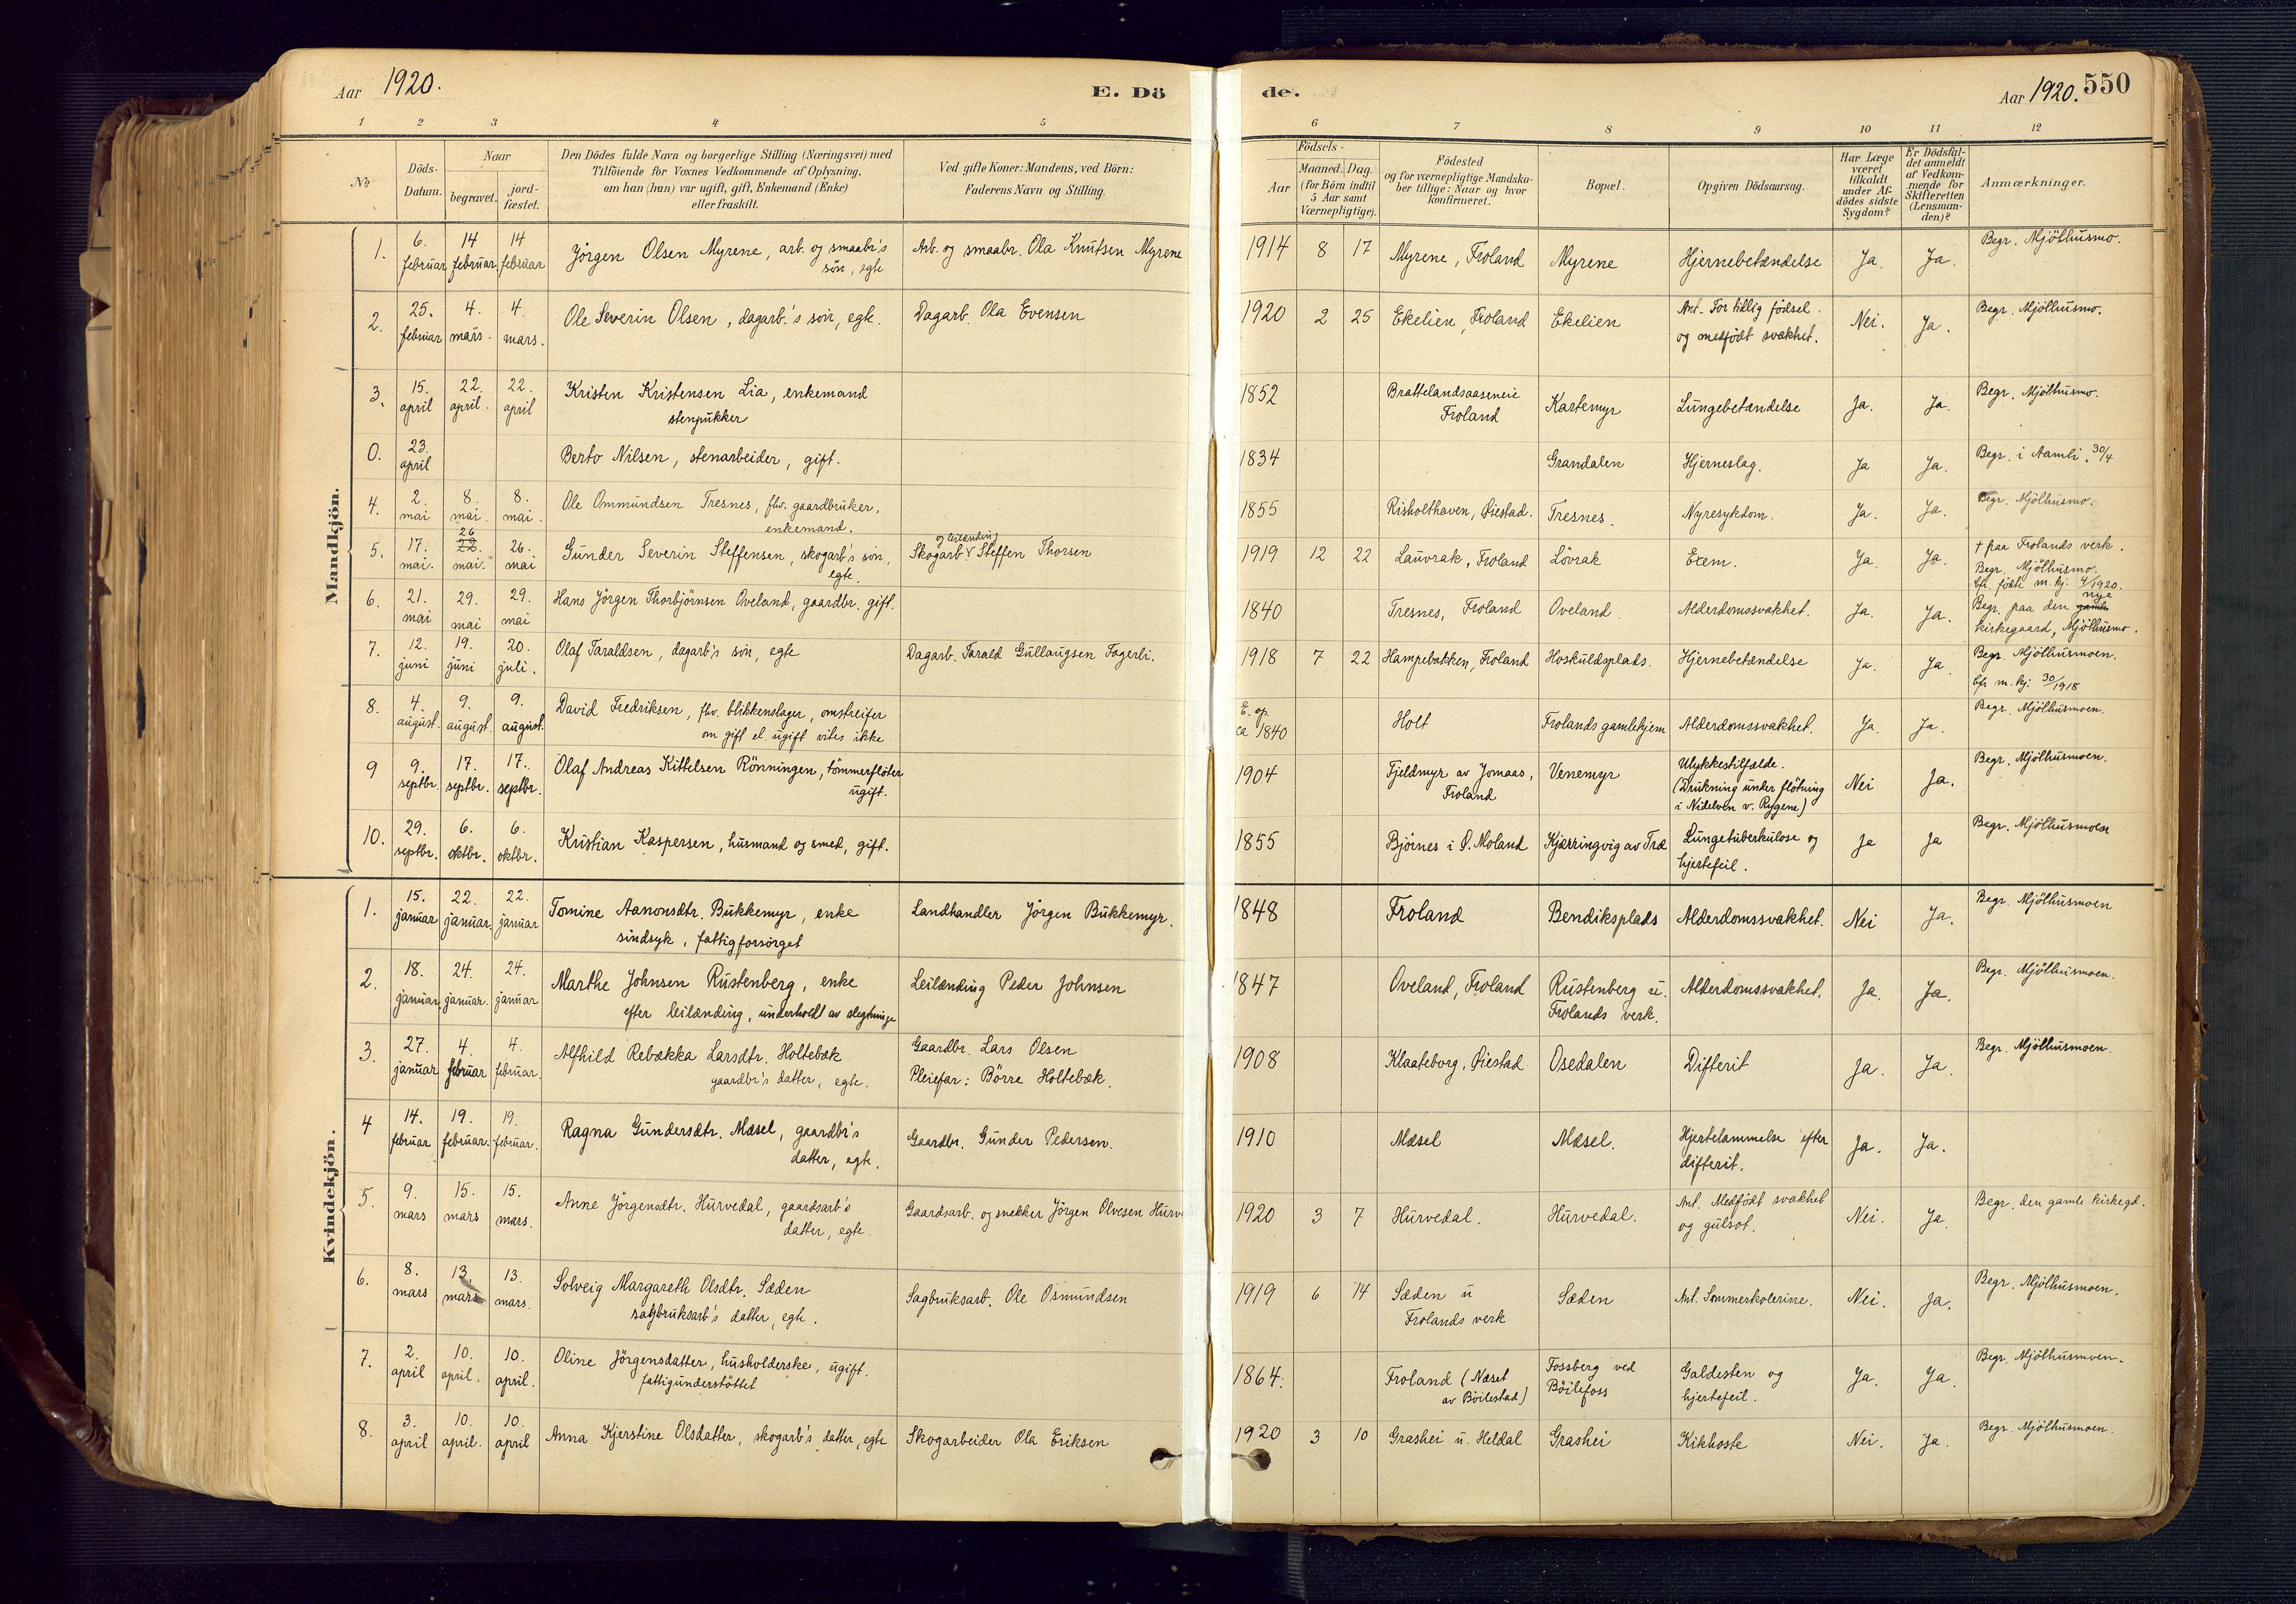 Aar 1920. E. Dö de. Aar 1920. 550
1 2 3 4 5 6 7 8 9 10 11 12
No
Döds-Datum.
Naar
begravet.
jord-fæstet.
Den Dödes fulde Navn og borgerlige Stilling (Næringsvei) med
Tilföiende for Voxnes Vedkommende af Oplysning,
om han (hun) var ugift, gift, Enkemand (Enke)
eller fraskilt.
Ved gifte Koner: Mandens, ved Börn:
Faderens Navn og Stilling.
Födsels-
Aar
Maaned. Dag.
(for Börn indtil
5 Aar samt
Værnepligtige).
Födested
og for værnepligtige Mandska-
ber tillige: Naar og hvor
konfirmeret.
Bopæl.
Opgiven Dödsaarsag.
Har Læge
været
tilkaldt
under Af-
dödes sidste
Sygdom?
Er Dödsfal-
det anmeldt
af Vedkom-
mende for
Skifteretten
(Lensman-
den)?
Anmærkninger.
Mandkjön.
1. 6. februar 14 februar 14 februar Jörgen Olsen Myrene, arb. og smaabr's sön, egte Arb. og smaabr. Ola Knutsen Myrene 1914 8 17 Myrene, Froland Myrene Hjernebetændelse Ja. Ja. Begr. Mjölhusmo.
2. 25. februar 4. mars. 4. mars. Ole Severin Olsen, dagarb.'s sön, egte. Dagarb. Ola Evensen 1920 2 25 Ekelien, Froland Ekelien Ant. For tidlig födsel og medfödt svakhet. Nei. Ja. Begr. Mjölhusmo.
3. 15. april 22. april. 22. april Kristen Kristensen Lia, enkemand stenpukker 1852 Brattelandsaaseneie Froland Kartemyr Lungebetændelse Ja. Ja. Begr. Mjölhusmo.
0. 23. april Berto Nilsen, stenarbeider, gift. 1834 Grandalen Hjerneslag. Ja Ja. Begr. i Aamli. 30/4
4. 2. mai 8. mai. 8. mai. Ole Ommundsen Tresnes, fhv. gaardbruker, enkemand. 1855 Risholthaven, Öiestad. Tresnes. Nyresykdom. Ja. Ja. Begr. Mjölhusmo.
5. 17. mai. 26 22. mai. 26. mai Gunder Severin Steffensen, skogarb's sön, egte. Skogarb. og leilænding Steffen Thorsen 1919 12 22 Lauvrak, Froland Lövrak Exem. Ja. Ja. † paa Frolands verk. Begr. Mjölhusmo. Cfr. födte m. kj. 4/1920.
6. 21. mai 29. mai 29. mai Hans Jörgen Thorbjörnsen Oveland, gaardbr. gift. 1840 Tresnes, Froland Oveland. Alderdomssvakhet. Ja. Ja. Begr. paa den gamle nye kirkegaard, Mjölhusmo.
7. 12. juni 19. juni 20. juli. Olaf Taraldsen, dagarb's sön, egte Dagarb. Tarald Gullaugsen Fagerli. 1918 7 22 Hampebakken, Froland Hoskuldsplads. Hjernebetændelse Ja. Ja. Begr. Mjölhusmoen. Cfr m. kj. 30/1918
8. 4. august. 9. august. 9. august. David Fredriksen, fhv. blikkenslager, omstreifer om gift el. ugift vites ikke E. op. ca 1840 Holt Frolands gamlehjem Alderdomssvakhet. Ja. Ja. Begr. Mjölhusmoen.
9 9. septbr. 17. septbr. 17. septbr. Olaf Andreas Kittelsen Rönningen, tömmerflöter ugift. 1904 Fjeldmyr av Jomaas, Froland Venemyr Ulykkestilfælde. (Drukning under flötning i Nidelven v. Rygene) Nei Ja. Begr. Mjölhusmoen.
10. 29. septbr. 6. oktbr. 6. oktbr. Kristian Kaspersen, husmand og smed, gift. 1855 Björnes i Ö. Moland Kjærringvig av Træ Lungetuberkulose og hjertefeil. Ja Ja Begr. Mjölhusmoen
Kvindekjön.
1. 15. januar 22. januar. 22. januar Tomine Aanonsdtr. Bukkemyr, enke sindsyk, fattigforsörget Landhandler Jörgen Bukkemyr. 1848 Froland Bendiksplads Alderdomssvakhet. Nei Ja. Begr. Mjölhusmoen
2. 18. januar 24. januar. 24. januar Marthe Johnsen Rustenberg, enke efter leilænding, underholdt av slegtninge Leilænding Peder Johnsen 1847 Oveland, Froland Rustenberg u. Frolands verk. Alderdomssvakhet. Ja. Ja. Begr. Mjölhusmoen.
3. 27. januar 4. februar 4. februar. Alfhild Rebækka Larsdtr. Holtebæk gaardbr's datter, egte. Gaardbr. Lars Olsen Pleiefar: Börre Holtebæk. 1908 Klaateborg, Öiestad Osedalen Difterit Ja. Ja. Begr. Mjölhusmoen.
4 14. februar 19. februar. 19. februar. Ragna Gundersdtr. Mæsel, gaardbr's datter, egte. Gaardbr. Gunder Pedersen. 1910 Mæsel Mæsel. Hjertelammelse efter difterit. Ja. Ja.
5. 9. mars 15. mars 15. mars. Anne Jörgensdtr. Hurvedal, gaardsarb's datter, egte. Gaardsarb. og snekker Jörgen Olvesen Hurv 1920 3 7 Hurvedal. Hurvedal. Ant. Medfödt svakhet og gulsot. Nei. Ja. Begr. den gamle kirkegd.
6. 8. mars 13. mars 13. mars. Solveig Margareth Olsdtr. Sæden sagbruksarb's datter, egte. Sagbruksarb. Ole Osmundsen 1919 6 14 Sæden u Frolands verk Sæden Ant. Sommerkolerine. Nei. Ja. Begr. Mjölhusmoen.
7. 2. april 10. april. 10. april. Oline Jörgensdatter, husholderske, ugift. fattigunderstöttet 1864. Froland (Næset av Böilestad) Fossberg ved Böilefoss Galdesten og hjertefeil. Ja. Ja. Begr. Mjölhusmoen.
8. 3. april 10. april. 10. april Anna Kjerstine Olsdatter, skogarb's datter, egte Skogarbeider Ola Eriksen 1920 3 10 Grashei u. Heldal Grashei Kikhoste Nei. Ja. Begr. Mjölhusmoen.